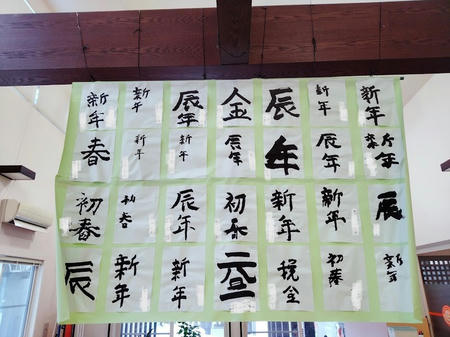 新年 新年 辰年 金 辰 新年 新年
春 新年 新年 辰年 年 辰年 新年
初春 初春 辰年 初 新年 新年 辰
辰 新年 新年 元旦 祝 初春 新年